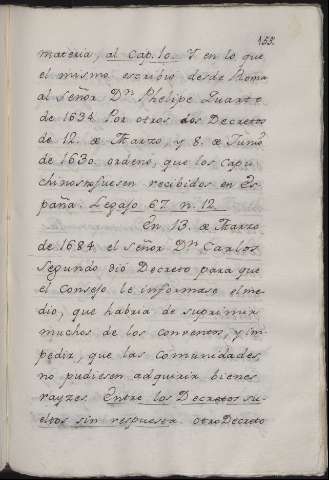 155.
materia, al cap. 10. Y en lo que
el mismo escribio desde Roma
al Señor Dn. Phelipe Quarto
de 1634. Por otros dos Decretos
de 12. de Marzo, y 8. de Junio
de 1630. ordenò, que los capu
chinos fuesen recibidos en Es
paña. Legajo 67. n. 12.
En 13. de Marzo
de 1684. el señor Dn. Carlos
Segundo diò Decreto para que
el Consejo le informase el me
dio, que habria de suprimir
muchos de los conventos, y im
pedir, que las comunidades,
no pudiesen adquirir bienes
rayzes. Entre los Decretos su
eltos sin respuesta. otro Decreto